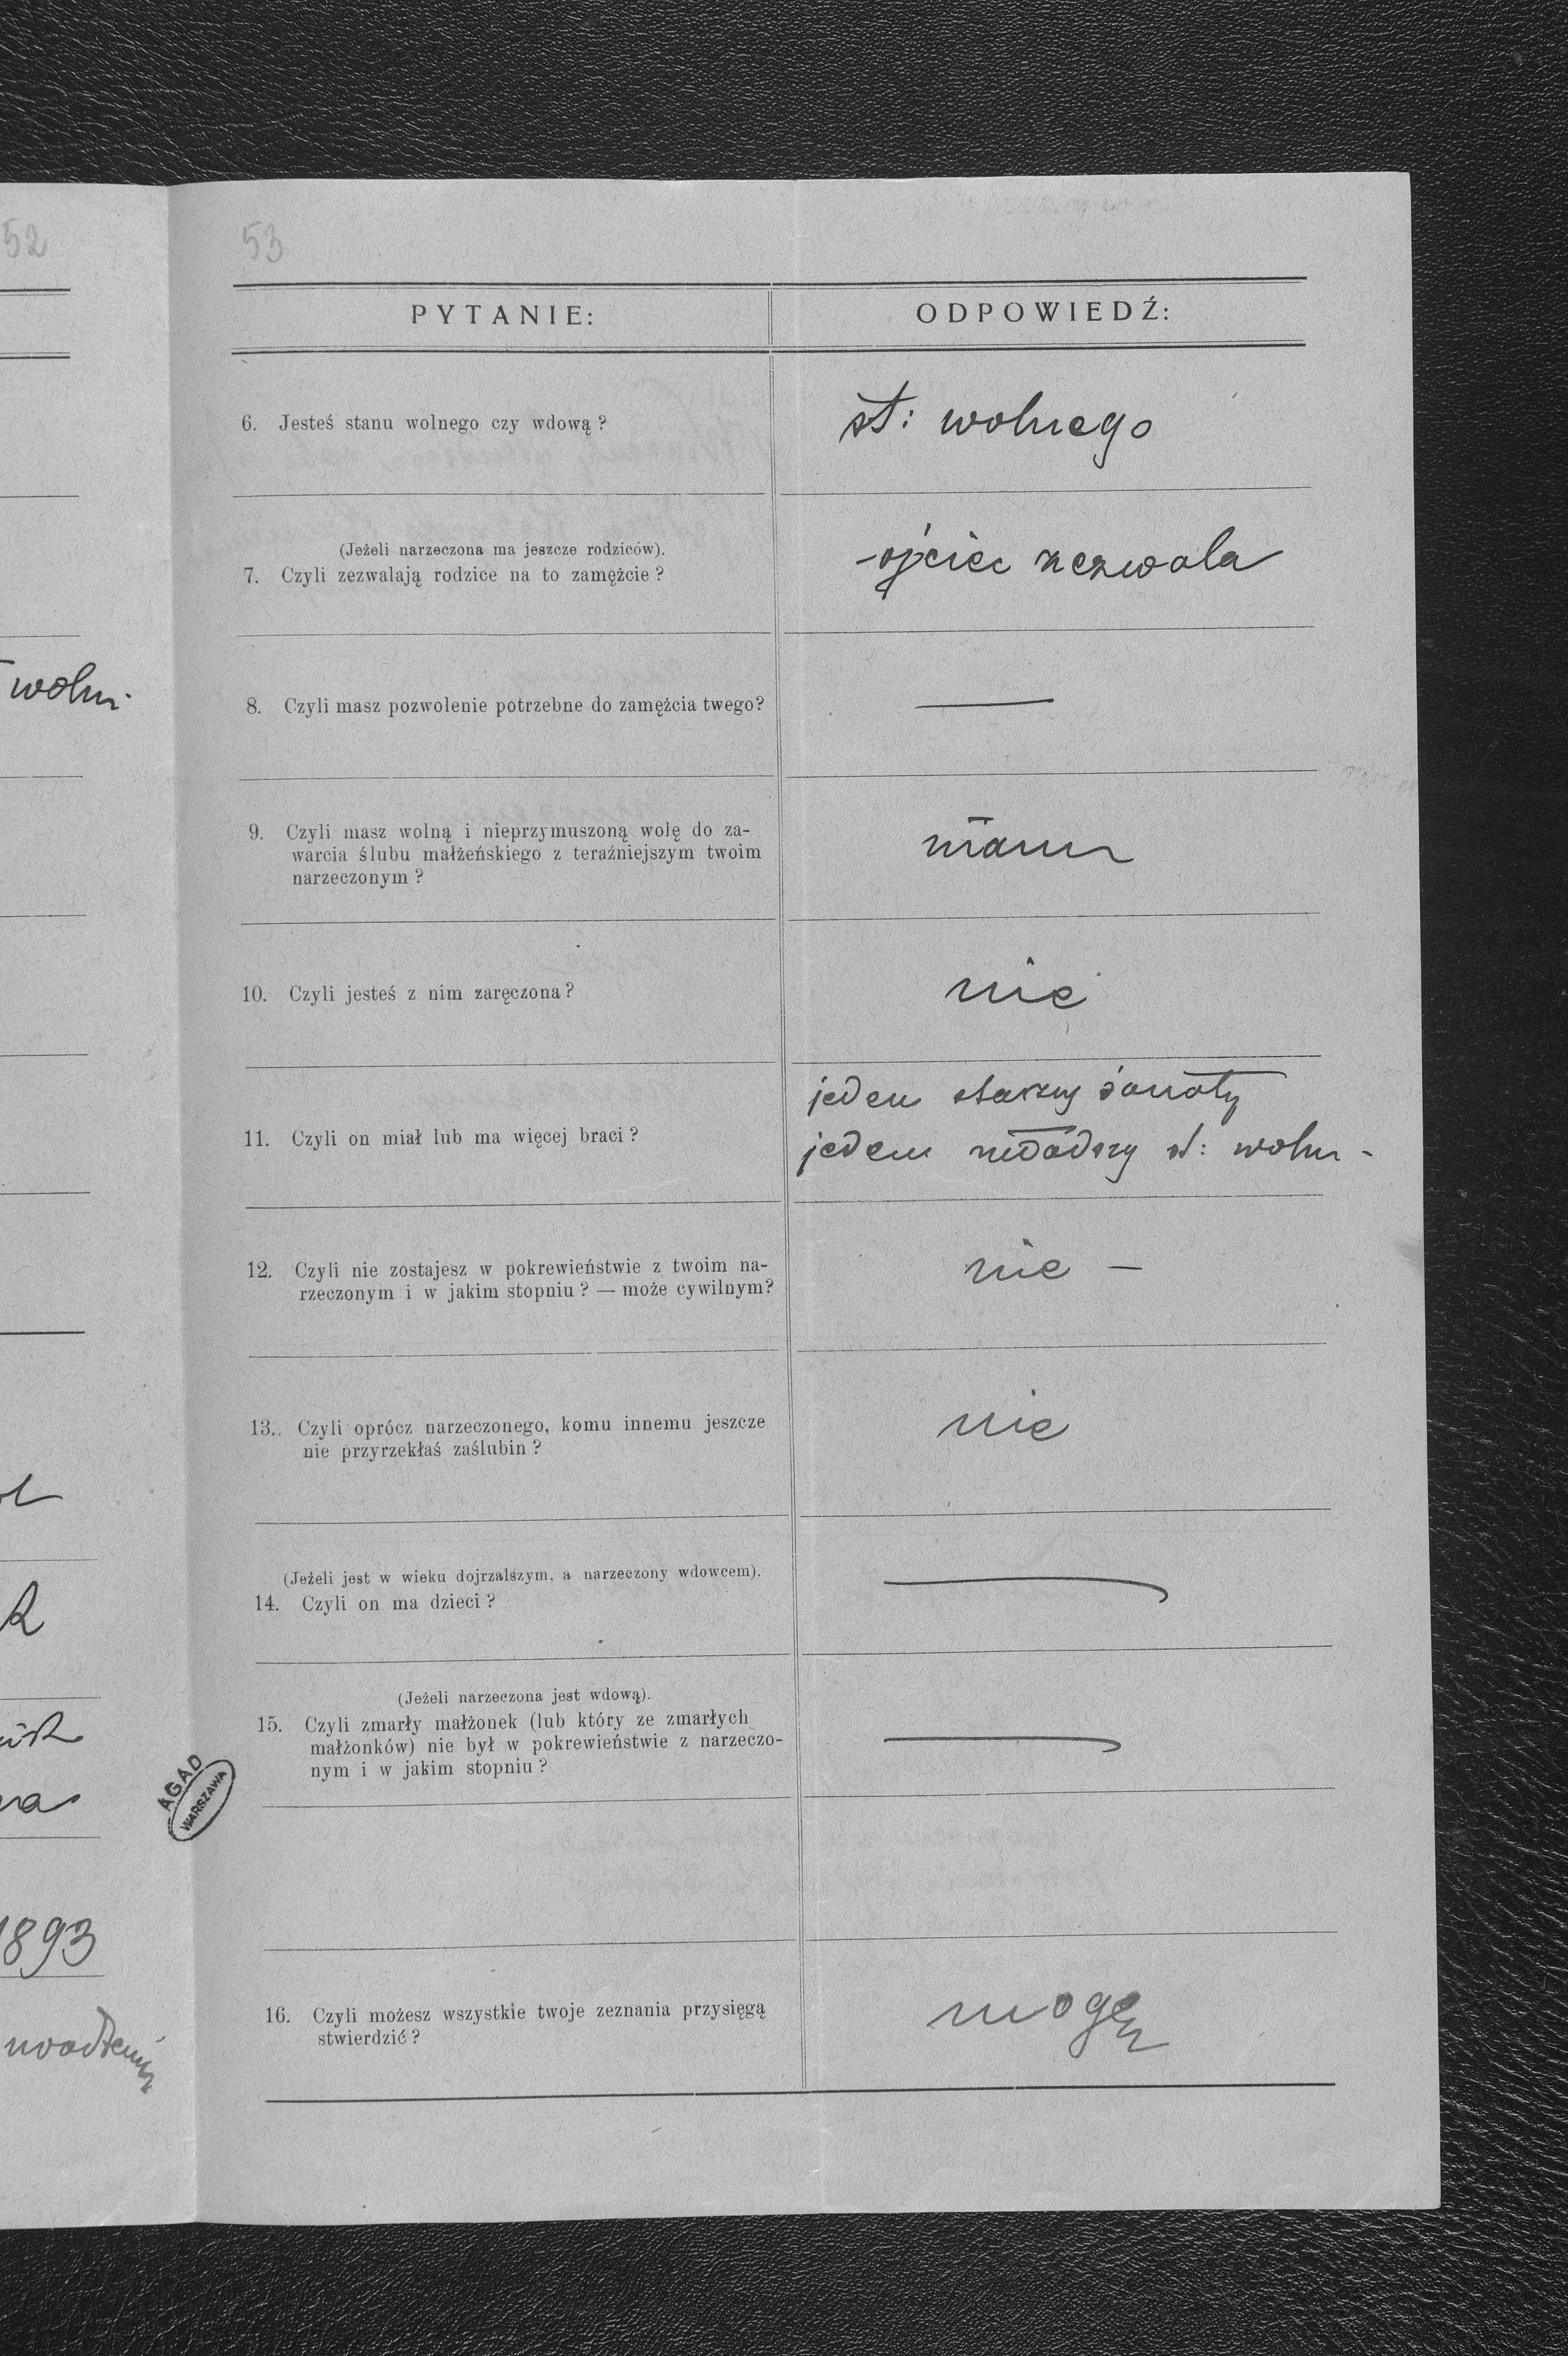 52
53
PYTANIE:
ODPOWIEDŹ:
6. Jesteś stanu wolnego czy wdową?
st: wolnego
(Jeżeli narzeczona ma jeszcze rodziców).
7. Czyli zezwalają rodzice na to zamężcie?
ojciec zezwala
woln.
8. Czyli masz pozwolenie potrzebne do zamężcia twego?
—
9. Czyli masz wolną i nieprzymuszoną wolę do za-
warcia ślubu małżeńskiego z teraźniejszym twoim
narzeczonym?
mam
10. Czyli jesteś z nim zaręczona?
nie
11. Czyli on miał lub ma więcej braci?
jeden starszy żonaty
jeden młodszy st: woln -
12. Czyli nie zostajesz w pokrewieństwie z twoim na-
rzeczonym i w jakim stopniu? — może cywilnym?
nie —
13. Czyli oprócz narzeczonego, komu innemu jeszcze
nie przyrzekłaś zaślubin?
nie
(Jeżeli jest w wieku dojrzalszym, a narzeczony wdowcem).
14. Czyli on ma dzieci?
—
(Jeżeli narzeczona jest wdową).
15. Czyli zmarły małżonek (lub który ze zmarłych
małżonków) nie był w pokrewieństwie z narzeczo-
nym i w jakim stopniu?
—
AGAD
WARSZAWA
1893
16. Czyli możesz wszystkie twoje zeznania przysięgą
stwierdzić?
mogę